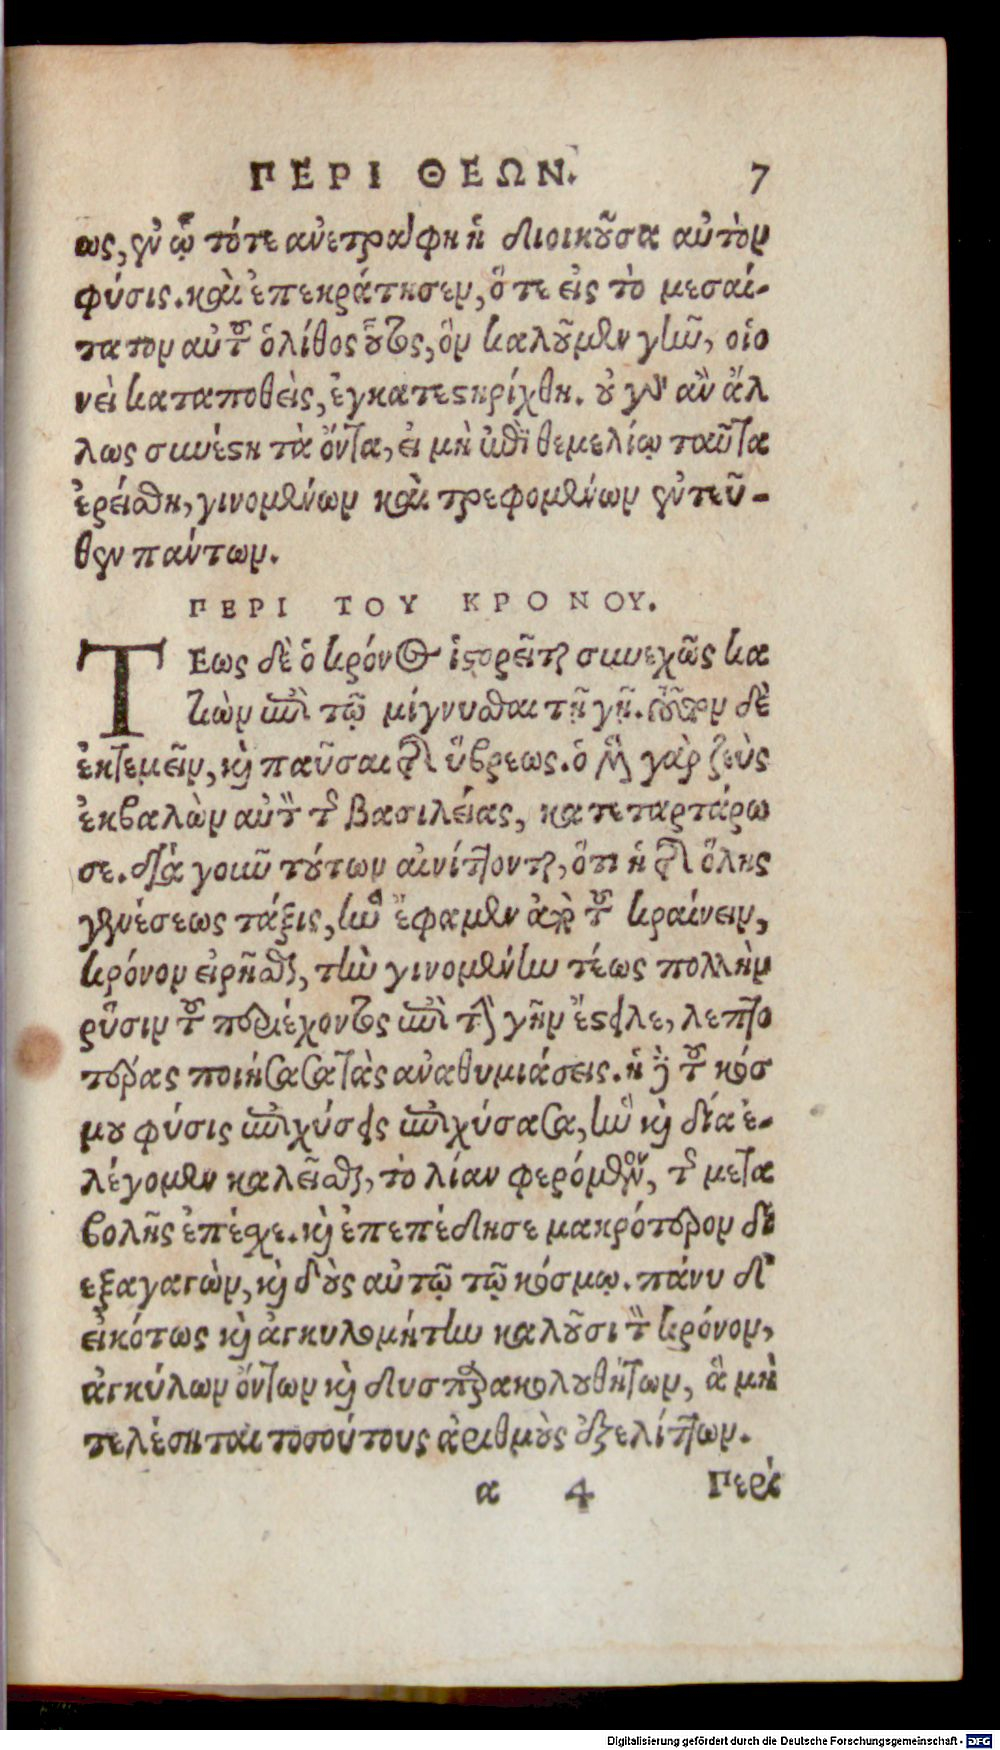 ΠΕΡΙ ΘΕΩΝ. 7
ως, ἐν ᾧ τότε ἀνετράφη ἡ διοικοῦσα αὐτὸν
φύσις. καὶ ἐπεκράτησεν, ὅτε εἰς τὸ μεσαί-
τατον αὐτοῦ ὁ λίθος οὗτος, ὃν καλοῦμεν γῆν, οἱο
νεὶ καταποθεὶς, ἐγκατεστηρίχθη. οὐ γὰρ ἂν ἄλ
λως συνέστη τὰ ὄντα, εἰ μὴ ἐπὶ θεμελίῳ ταῦτα
ἐρείσθη, γινομένων καὶ τρεφομένων ἐντεῦ-
θεν πάντων.
ΠΕΡΙ ΤΟΥ ΚΡΟΝΟΥ.
ΤΕως δὲ ὁ κρόνος ἱστορεῖται συνεχῶς κα
τιὼν ἐπὶ τῷ μίγνυσθαι τῇ γῇ. δὲ
ἐκτεμεῖν, καὶ παῦσαι τῆς ὕβρεως. ὁ μὲν γὰρ ζεὺς
ἐκβαλὼν αὐτὸν τῆς βασιλείας, κατεταρτάρω
σε. διὰ γοῦν τούτων αἰνίττονται, ὅτι ἡ τῆς ὅλης
γενέσεως τάξις, ἣν ἔφαμεν ἀπὸ τοῦ κραίνειν,
κρόνον εἰρῆσθαι, τὴν γινομένην τέως πολλὴν
ρύσιν τοῦ περιέχοντος ἐπὶ τὴν γῆν ἔστειλε, λεπτο
τέρας ποιήσασα τὰς ἀναθυμιάσεις. ἡ δὲ τοῦ κόσ
μου φύσις ἐπιχύσεις ἐπιχύσασα, ἣν καὶ δία ἐ-
λέγομεν καλεῖσθαι, τὸ λίαν φερόμενον, τῆς μετα
βολῆς ἐπέσχε. καὶ ἐπεπέδησε μακρότερον δὲ
ἐξαγαγὼν, καὶ δοὺς αὐτῷ τῷ κόσμῳ. πάνυ δ'
εἰκότως καὶ ἀγκυλομήτην καλοῦσι τὸν κρόνον,
ἀγκύλων ὄντων καὶ δυσπαρακολουθήτων, ἃ μὴ
τελέσηται τοσούτους ἀριθμοὺς ἐξελίττων.
α 4 Περὶ
Digitalisierung gefördert durch die Deutsche Forschungsgemeinschaft - DFG